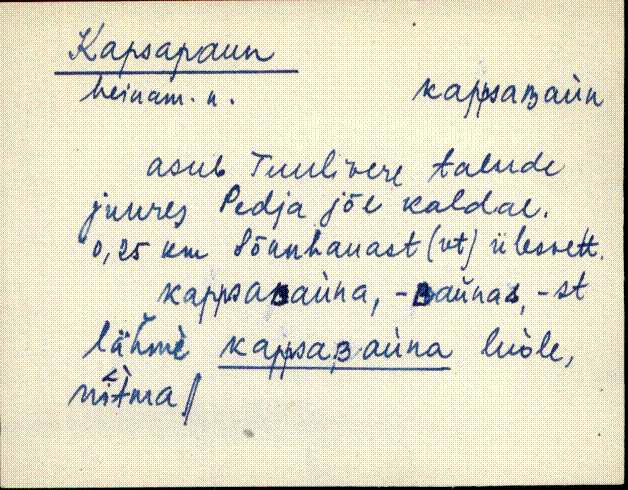 Kapsapaun
heinam. n. kappsaʙaùn
asub Tuulivere talude
juures Pedja jõe kaldal.
0,25 km Sõnnhauast (vt) ülesvett.
kappsaʙaùna, -ʙaùnas, -st
lähmè kappsaʙaùna luòle,
nìtma //